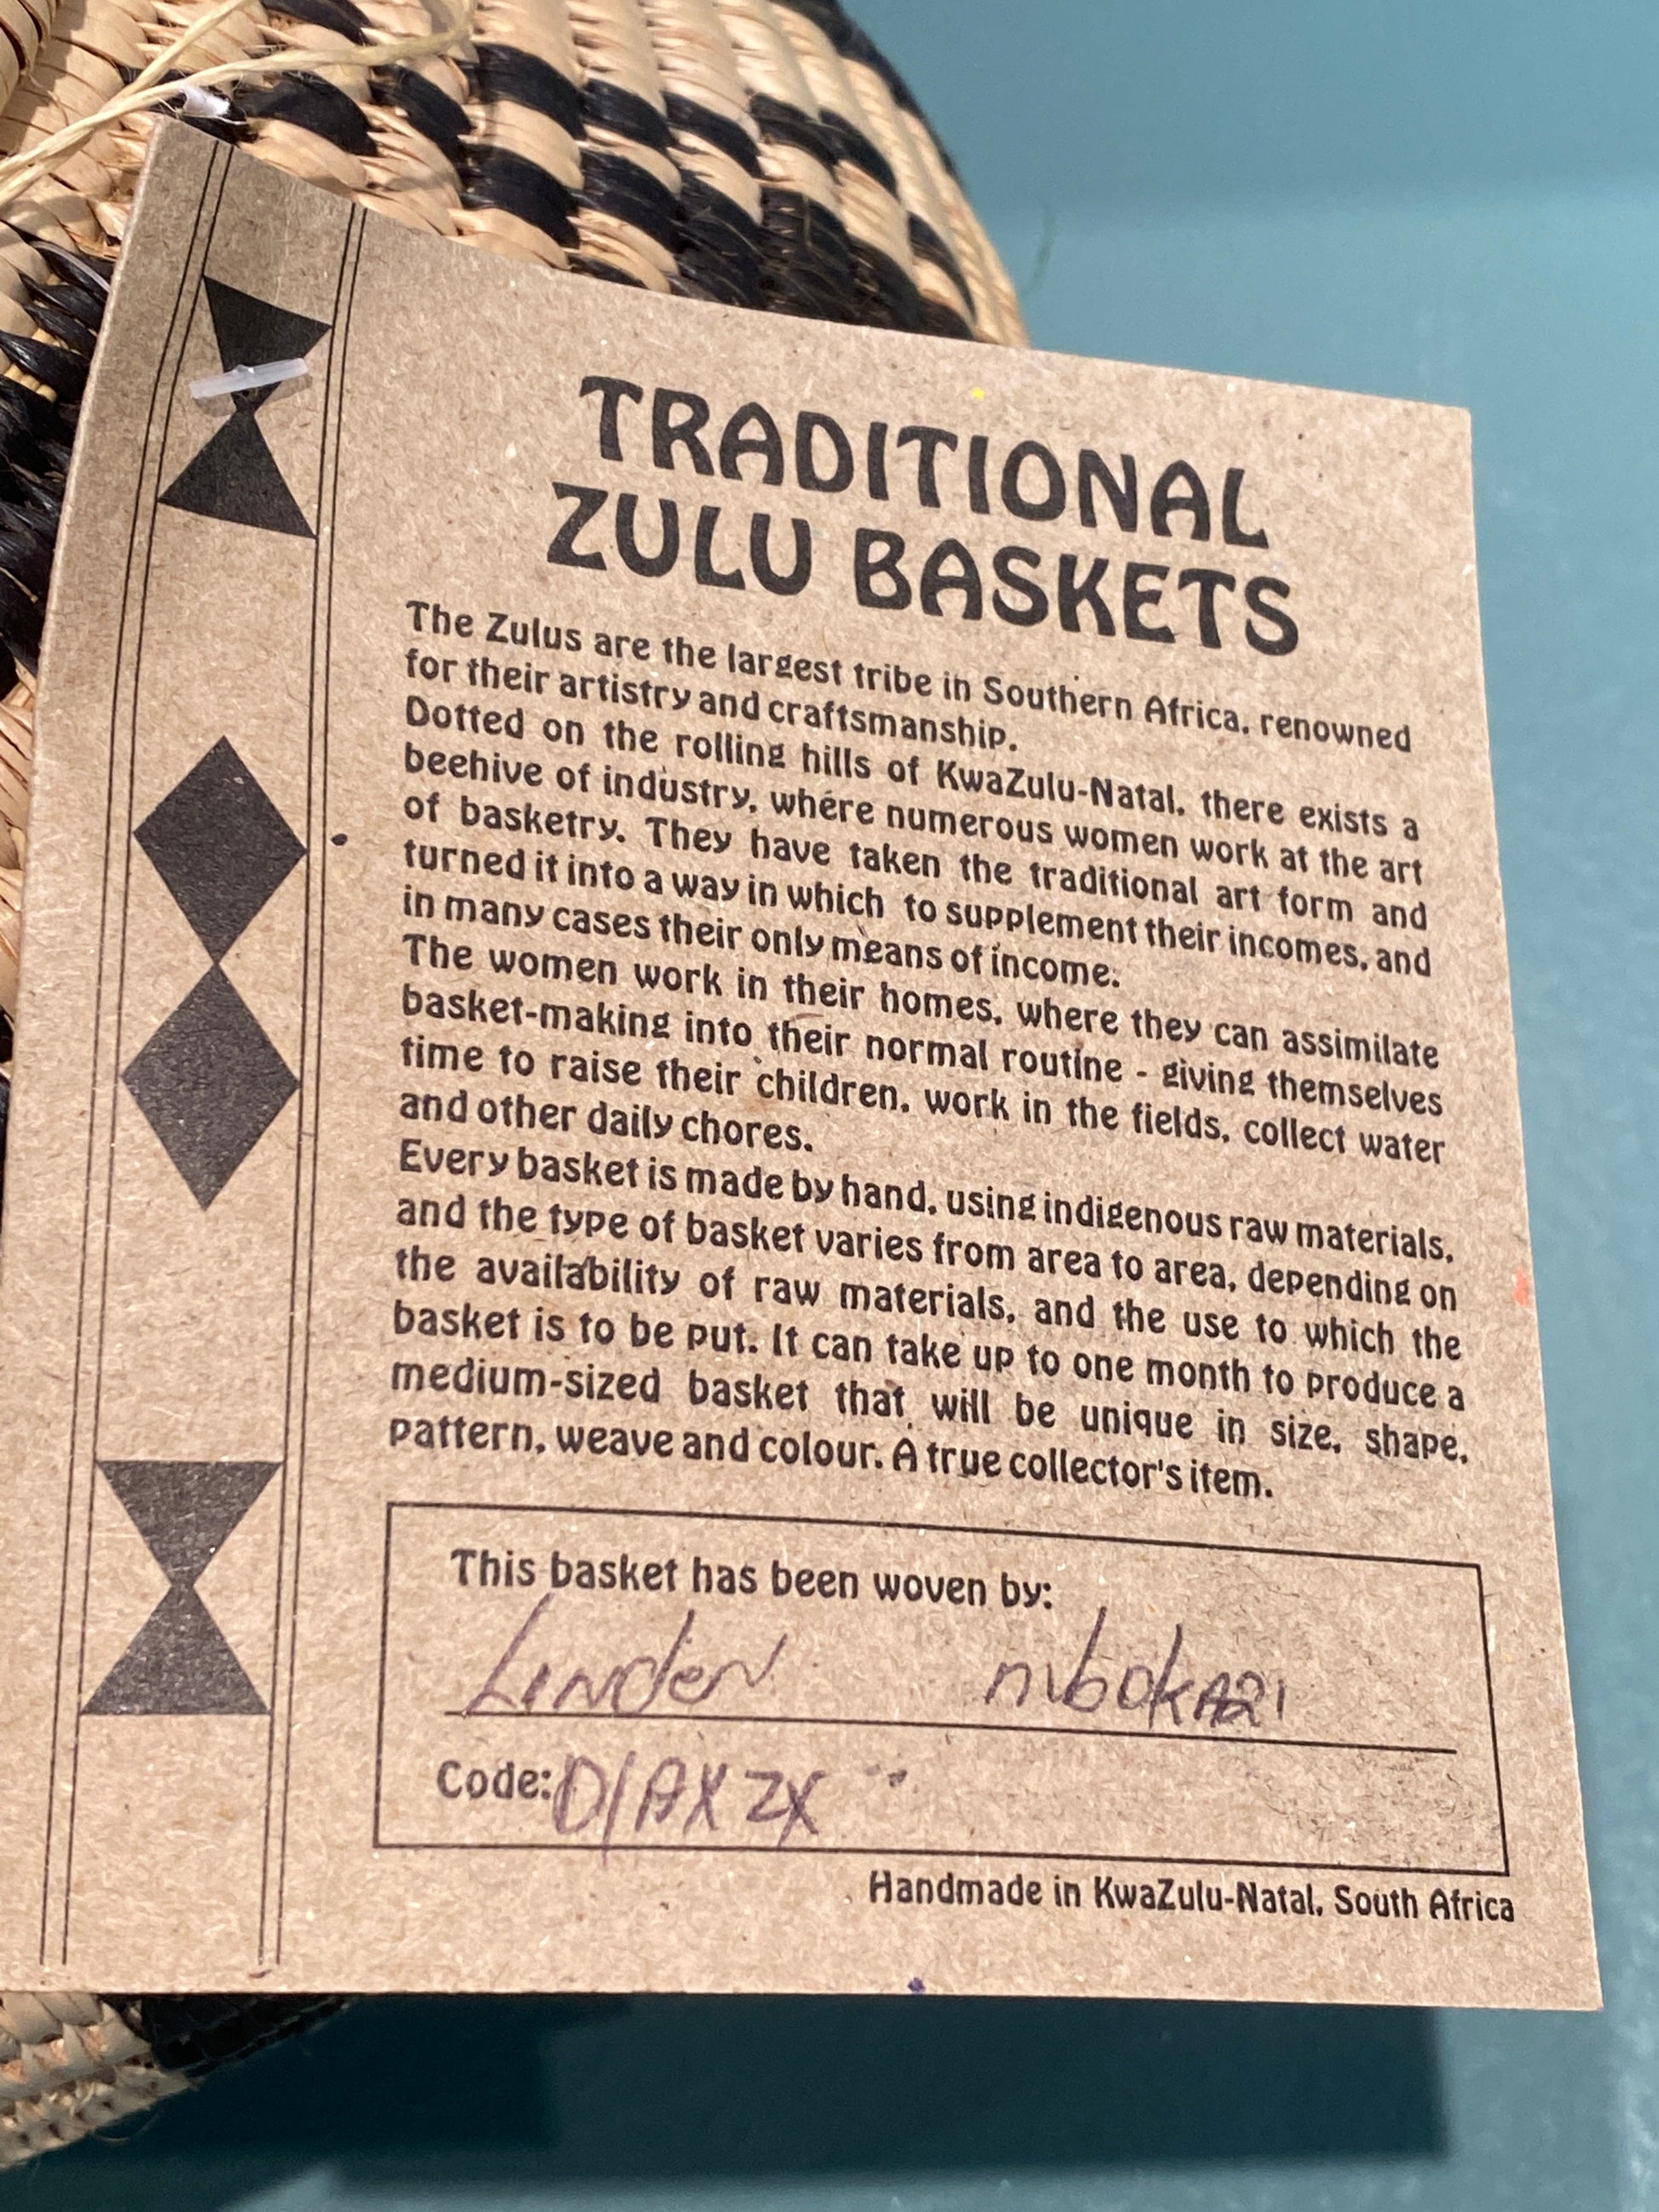 TRADITIONAL
ZULU BASKETS
The Zulus are the largest tribe in Southern Africa, renowned
for their artistry and craftsmanship.
Dotted on the rolling hills of KwaZulu-Natal, there exists a
beehive of industry, where numerous women work at the art
of basketry. They have taken the traditional art form and
turned it into a way in which to supplement their incomes, and
in many cases their only means of income.
The women work in their homes, where they can assimilate
basket-making into their normal routine - giving themselves
time to raise their children, work in the fields, collect water
and other daily chores.
Every basket is made by hand, using indigenous raw materials,
and the type of basket varies from area to area, depending on
the availability of raw materials, and the use to which the
basket is to be put. It can take up to one month to produce a
medium-sized basket that will be unique in size, shape,
pattern, weave and colour. A true collector's item.
This basket has been woven by:
Linden
Code:
Handmade in KwaZulu-Natal, South Africa